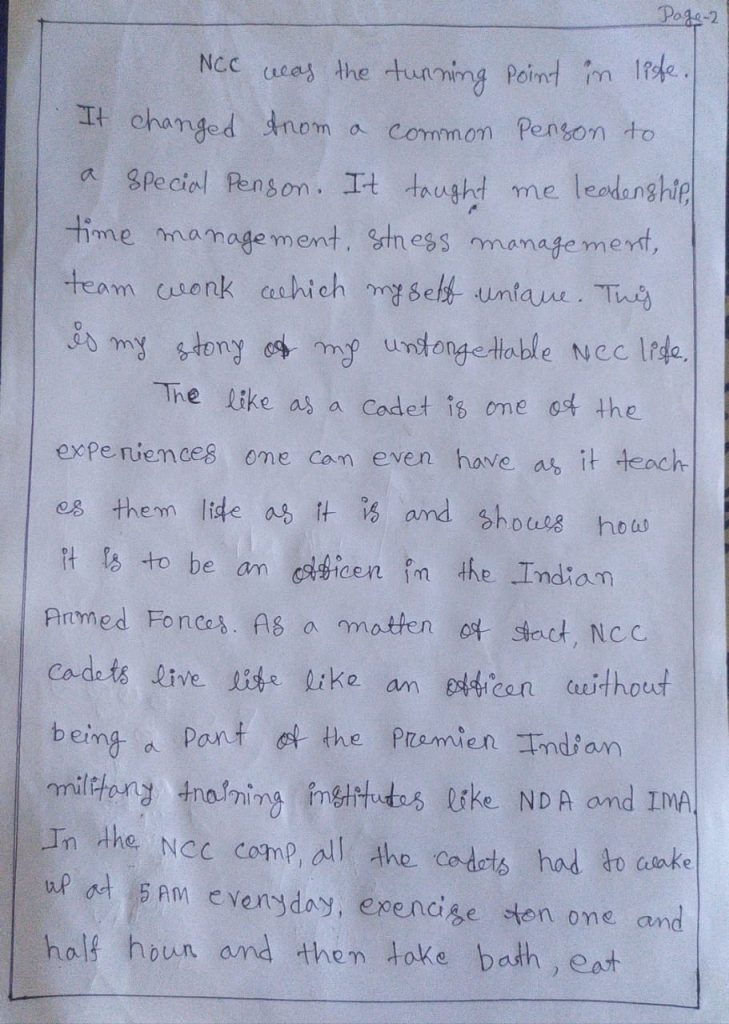 Page-2
NCC was the turning Point in life.
It changed from a common Person to
a special Person. It taught me leadership,
time management, stress management,
team work which myself unique. This
is my story of my unforgettable NCC life.
The like as a cadet is one of the
experiences one can ever have as it teach
es them life as it is and shows how
it is to be an officer in the Indian
Armed Forces. As a matter of fact, NCC
cadets live life like an officer without
being a Part of the Premier Indian
military training institutes like NDA and IMA
In the NCC camp, all the cadets had to wake
up at 5 AM everyday, exercise for one and
half hour and then take bath, eat